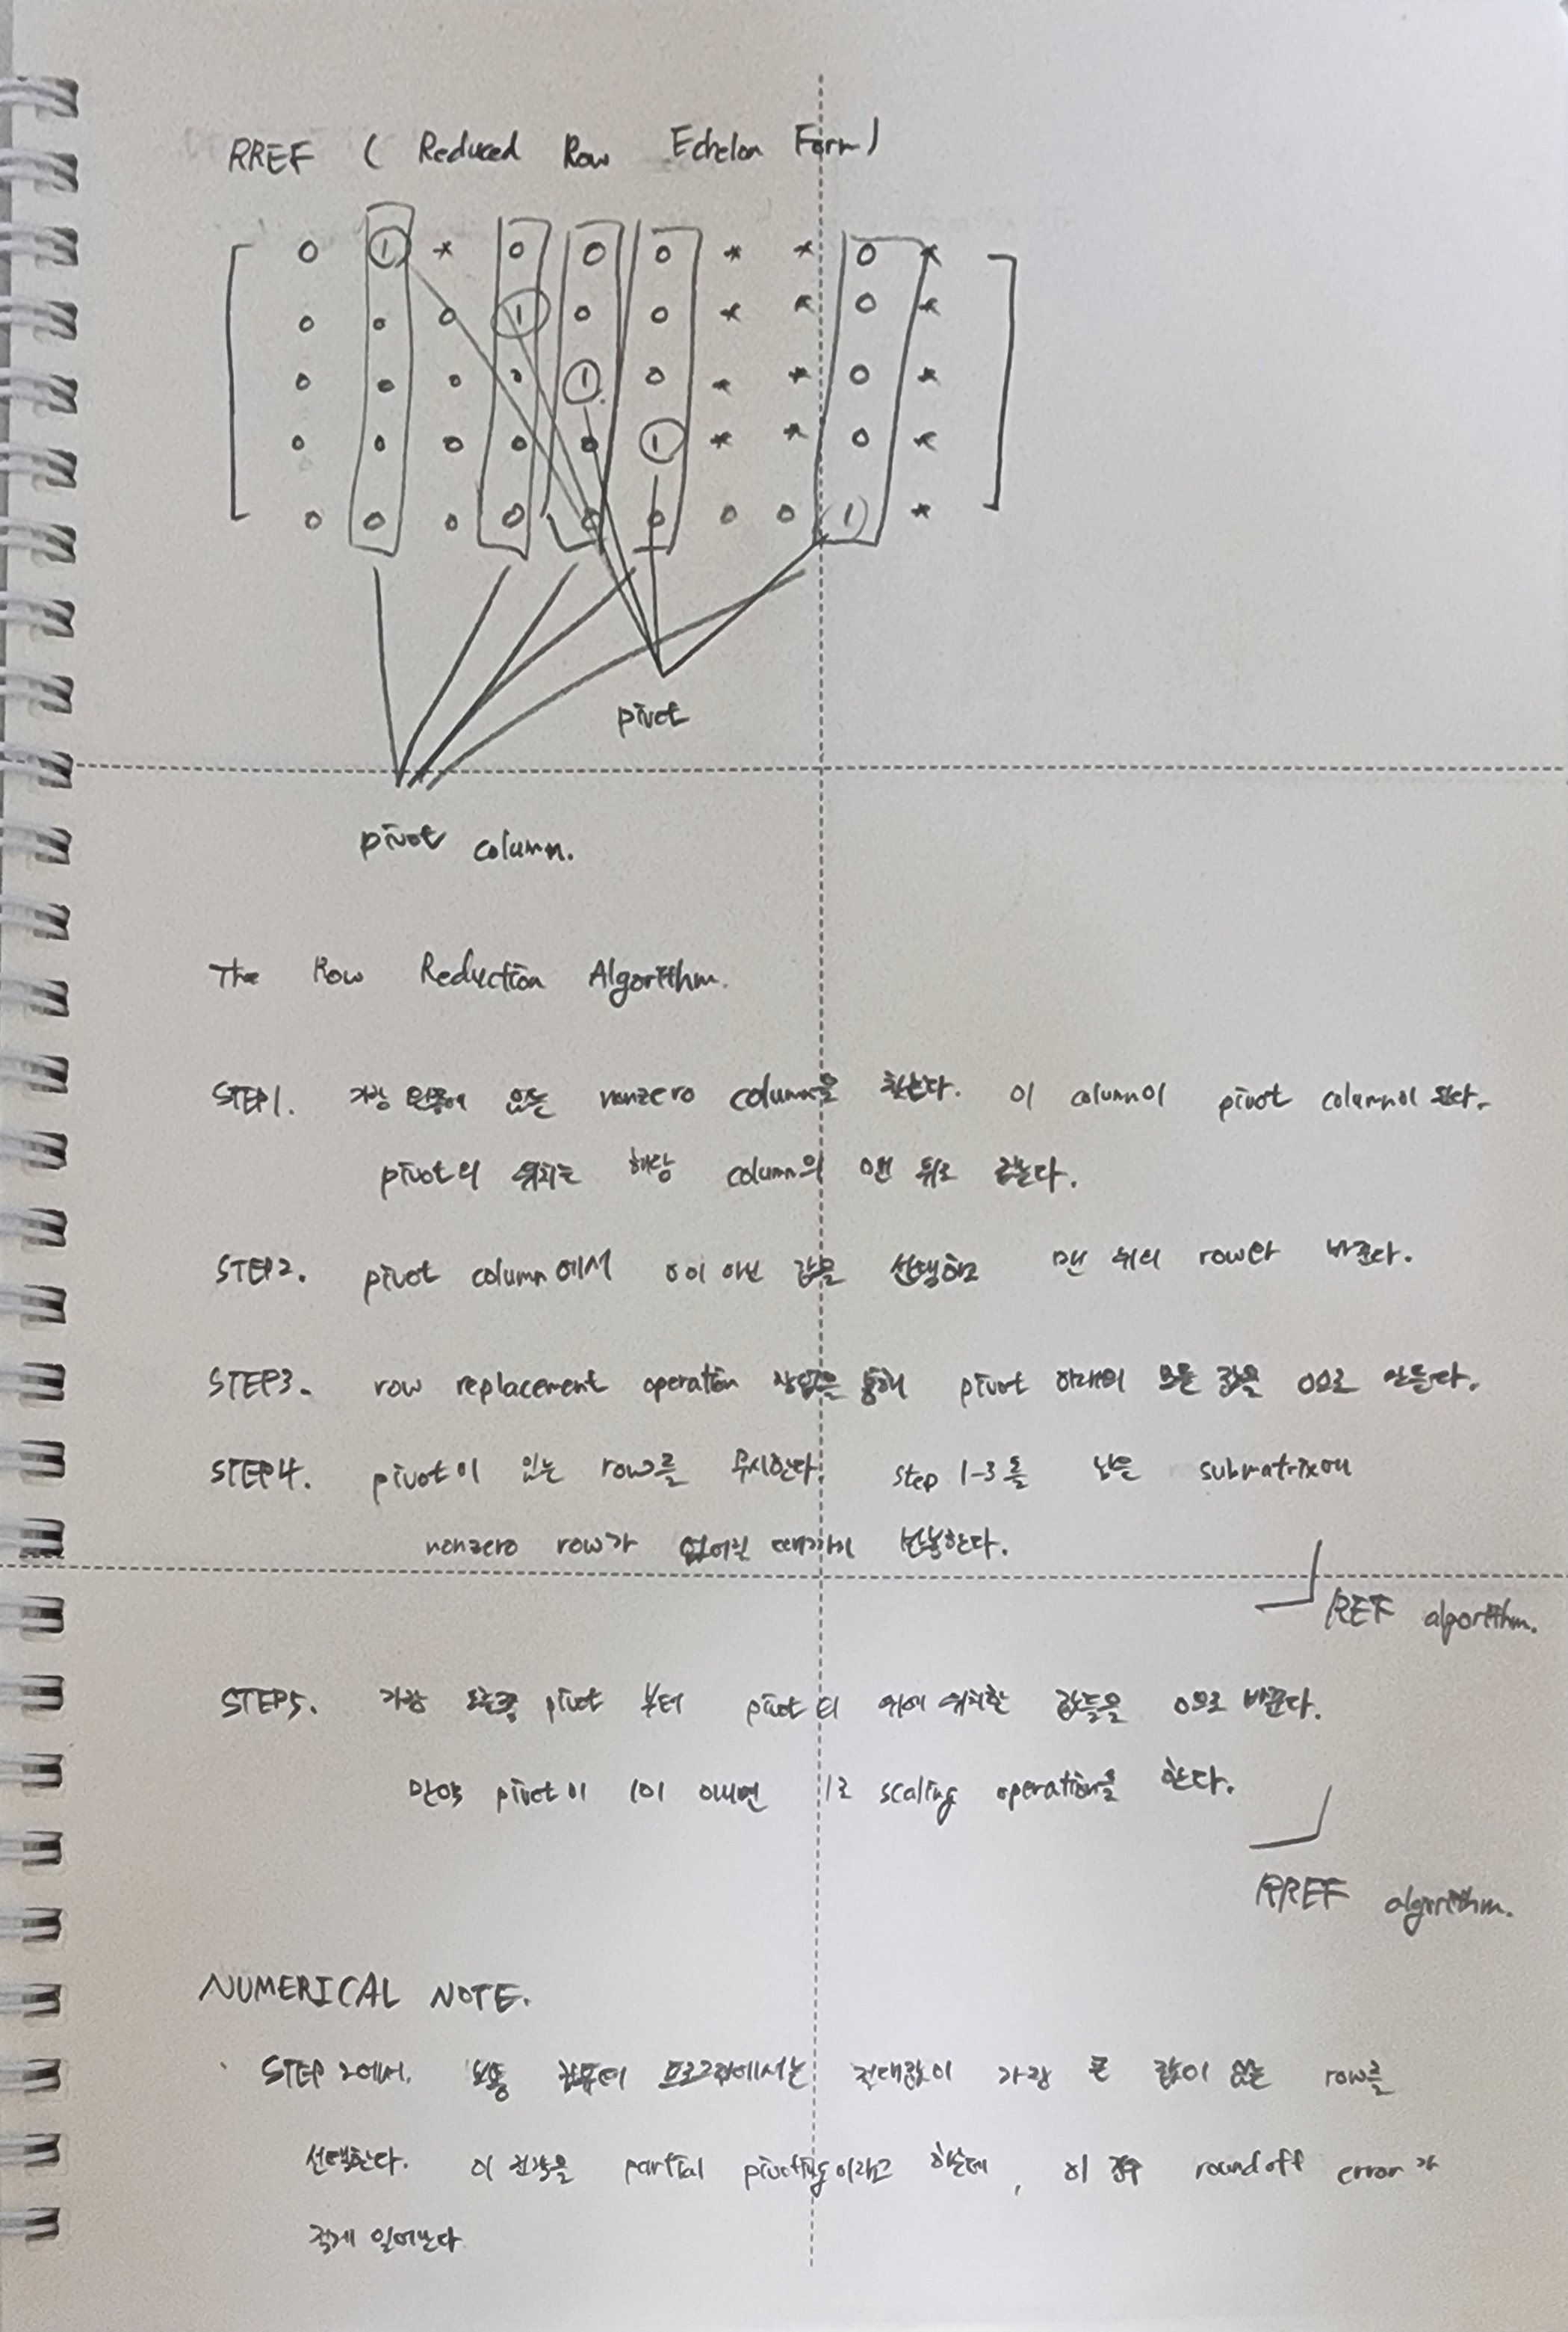 RREF ( Reduced Row Echelon Form )
0 1 * 0 0 0 * * 0 *
0 0 0 1 0 0 * * 0 *
0 0 0 0 1 0 * * 0 *
0 0 0 0 0 1 * * 0 *
0 0 0 0 0 0 0 0 1 *
pivot
pivot column.
The Row Reduction Algorithm.
STEP1. 가장 왼쪽에 있는 nonzero column을 찾는다. 이 column이 pivot column이 된다.
pivot의 위치는 해당 column의 맨 위로 잡는다.
STEP2. pivot column에서 0이 아닌 값을 선택하고 맨 위의 row와 바꾼다.
STEP3. row replacement operation 작업을 통해 pivot 아래의 모든 값을 0으로 만든다.
STEP4. pivot이 있는 row를 무시한다. step 1-3을 남은 submatrix에
nonzero row가 없어질 때까지 반복한다.
REF algorithm.
STEP5. 가장 오른쪽 pivot 부터 pivot의 위에 위치한 값들을 0으로 바꾼다.
만약 pivot이 1이 아니면 1로 scaling operation을 한다.
RREF algorithm.
NUMERICAL NOTE.
STEP 2에서. 보통 컴퓨터 프로그램에서는 절대값이 가장 큰 값이 있는 row를
선택한다. 이 전략을 partial pivoting이라고 하는데, 이 경우 roundoff error가
적게 일어난다